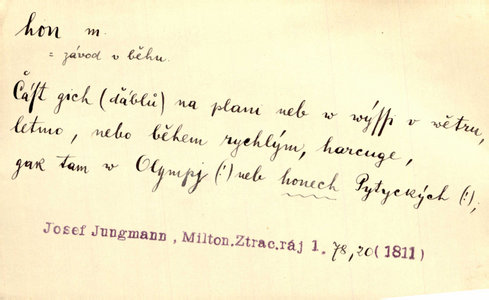 hon m.
= závod v běhu.
Částt gich (ďáblů) na plani neb w wýssi v wětru,
letmo, nebo během rychlým, harcuge,
gak tam w Olympj (!) neb honech Pytyckých (!);
Josef Jungmann, Milton.Ztrac.ráj 1. 78, 20 (1811)